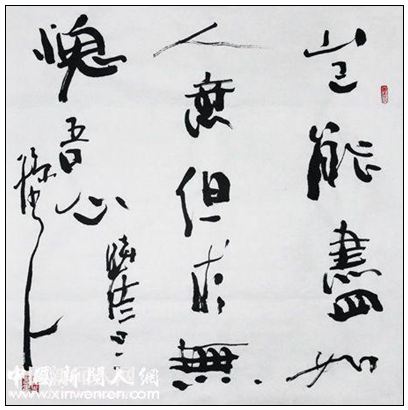 岂能盡如
人意但求無
愧吾心
中國新聞人網
www.xinwenren.com